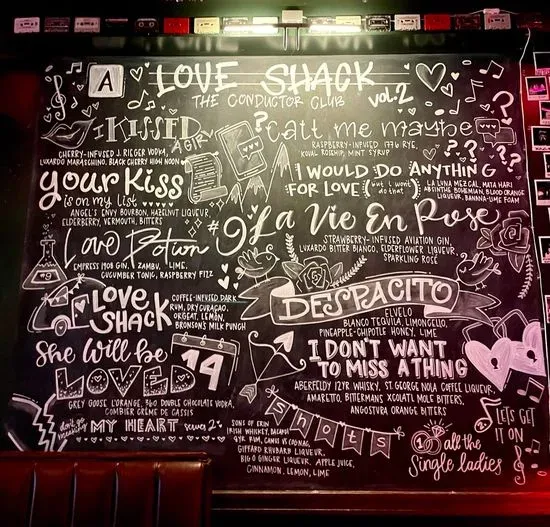 A
LOVE SHACK
THE CONDUCTOR CLUB
vol.2
I KISSED
A GIRL
CHERRY-INFUSED J. RIEGER VODKA,
LUXARDO MARASCHINO, BLACK CHERRY HIGH NOON
your Kiss
is on my list
ANGEL'S ENVY BOURBON, HAZELNUT LIQUEUR,
ELDERBERRY, VERMOUTH, BITTERS
Love Potion
#9
EMPRESS 1908 GIN, ZAMBU, LIME,
CUCUMBER TONIC, RASPBERRY FIZZ
LOVE
SHACK
COFFEE-INFUSED DARK
RUM, DRY CURAÇAO,
ORGEAT, LEMON,
BRONSON'S MILK PUNCH
She will be
LOVED
14
GREY GOOSE L'ORANGE, 360 DOUBLE CHOCOLATE VODKA,
COMBIER CRÈME DE CASSIS
don't go
breaking
MY HEART
SONS OF ERIN
IRISH WHISKEY, BACARDI
GIFFARD RHUBARB LIQUEUR,
BIG O GINGER LIQUEUR, APPLE JUICE,
CINNAMON, LEMON, LIME
call me maybe
RASPBERRY-INFUSED 1776 RYE,
KOVAL ROSEHIP, MINT SYRUP
I WOULD DO ANYTHING
FOR LOVE (but I won't do that)
LA LUNA MEZCAL, MATA HARI
ABSINTHE BOHEMIAN, BLOOD ORANGE
LIQUEUR, BANANA-LIME FOAM
La Vie En Rose
STRAWBERRY-INFUSED AVIATION GIN,
LUXARDO BITTER BIANCO, ELDERFLOWER LIQUEUR,
SPARKLING ROSE
DESPACITO
ELVELO
BLANCO TEQUILA, LIMONCELLO,
PINEAPPLE-CHIPOTLE HONEY, LIME
I DON'T WANT
TO MISS A THING
ABERFELDY 12YR WHISKY, ST. GEORGE NOLA COFFEE LIQUEUR,
AMARETTO, BITTERMANS XCOLATL MOLE BITTERS,
ANGOSTURA ORANGE BITTERS
shots
all the
Single ladies
LET'S GET
IT ON